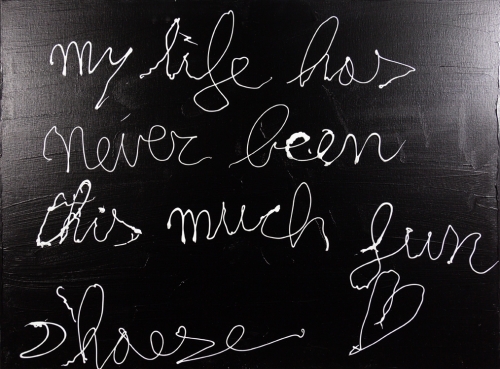 my life has
never been
this much fun